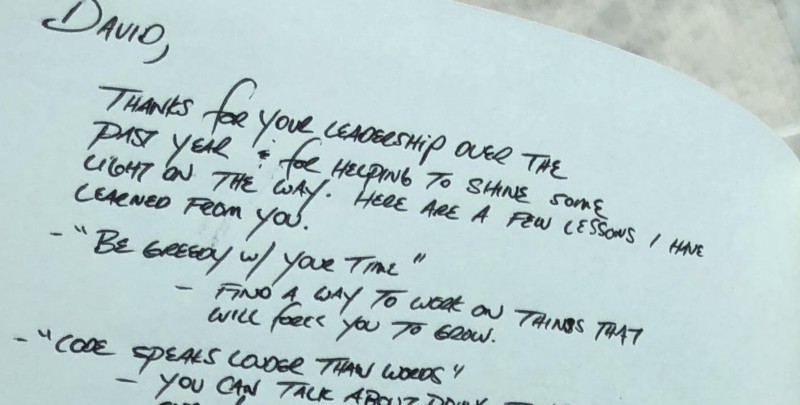 DAVID,
THANKS for YOUR LEADERSHIP OVER THE
PAST YEAR & for HELPING TO SHINE SOME
LIGHT ON THE WAY. HERE ARE A FEW LESSONS I HAVE
LEARNED FROM YOU.
- "BE GREEDY w/ YOUR TIME"
- FIND A WAY TO WORK ON THINGS THAT
WILL force YOU TO GROW.
- "CODE SPEAKS LOUDER THAN WORDS"
- YOU CAN TALK ABOUT DOING